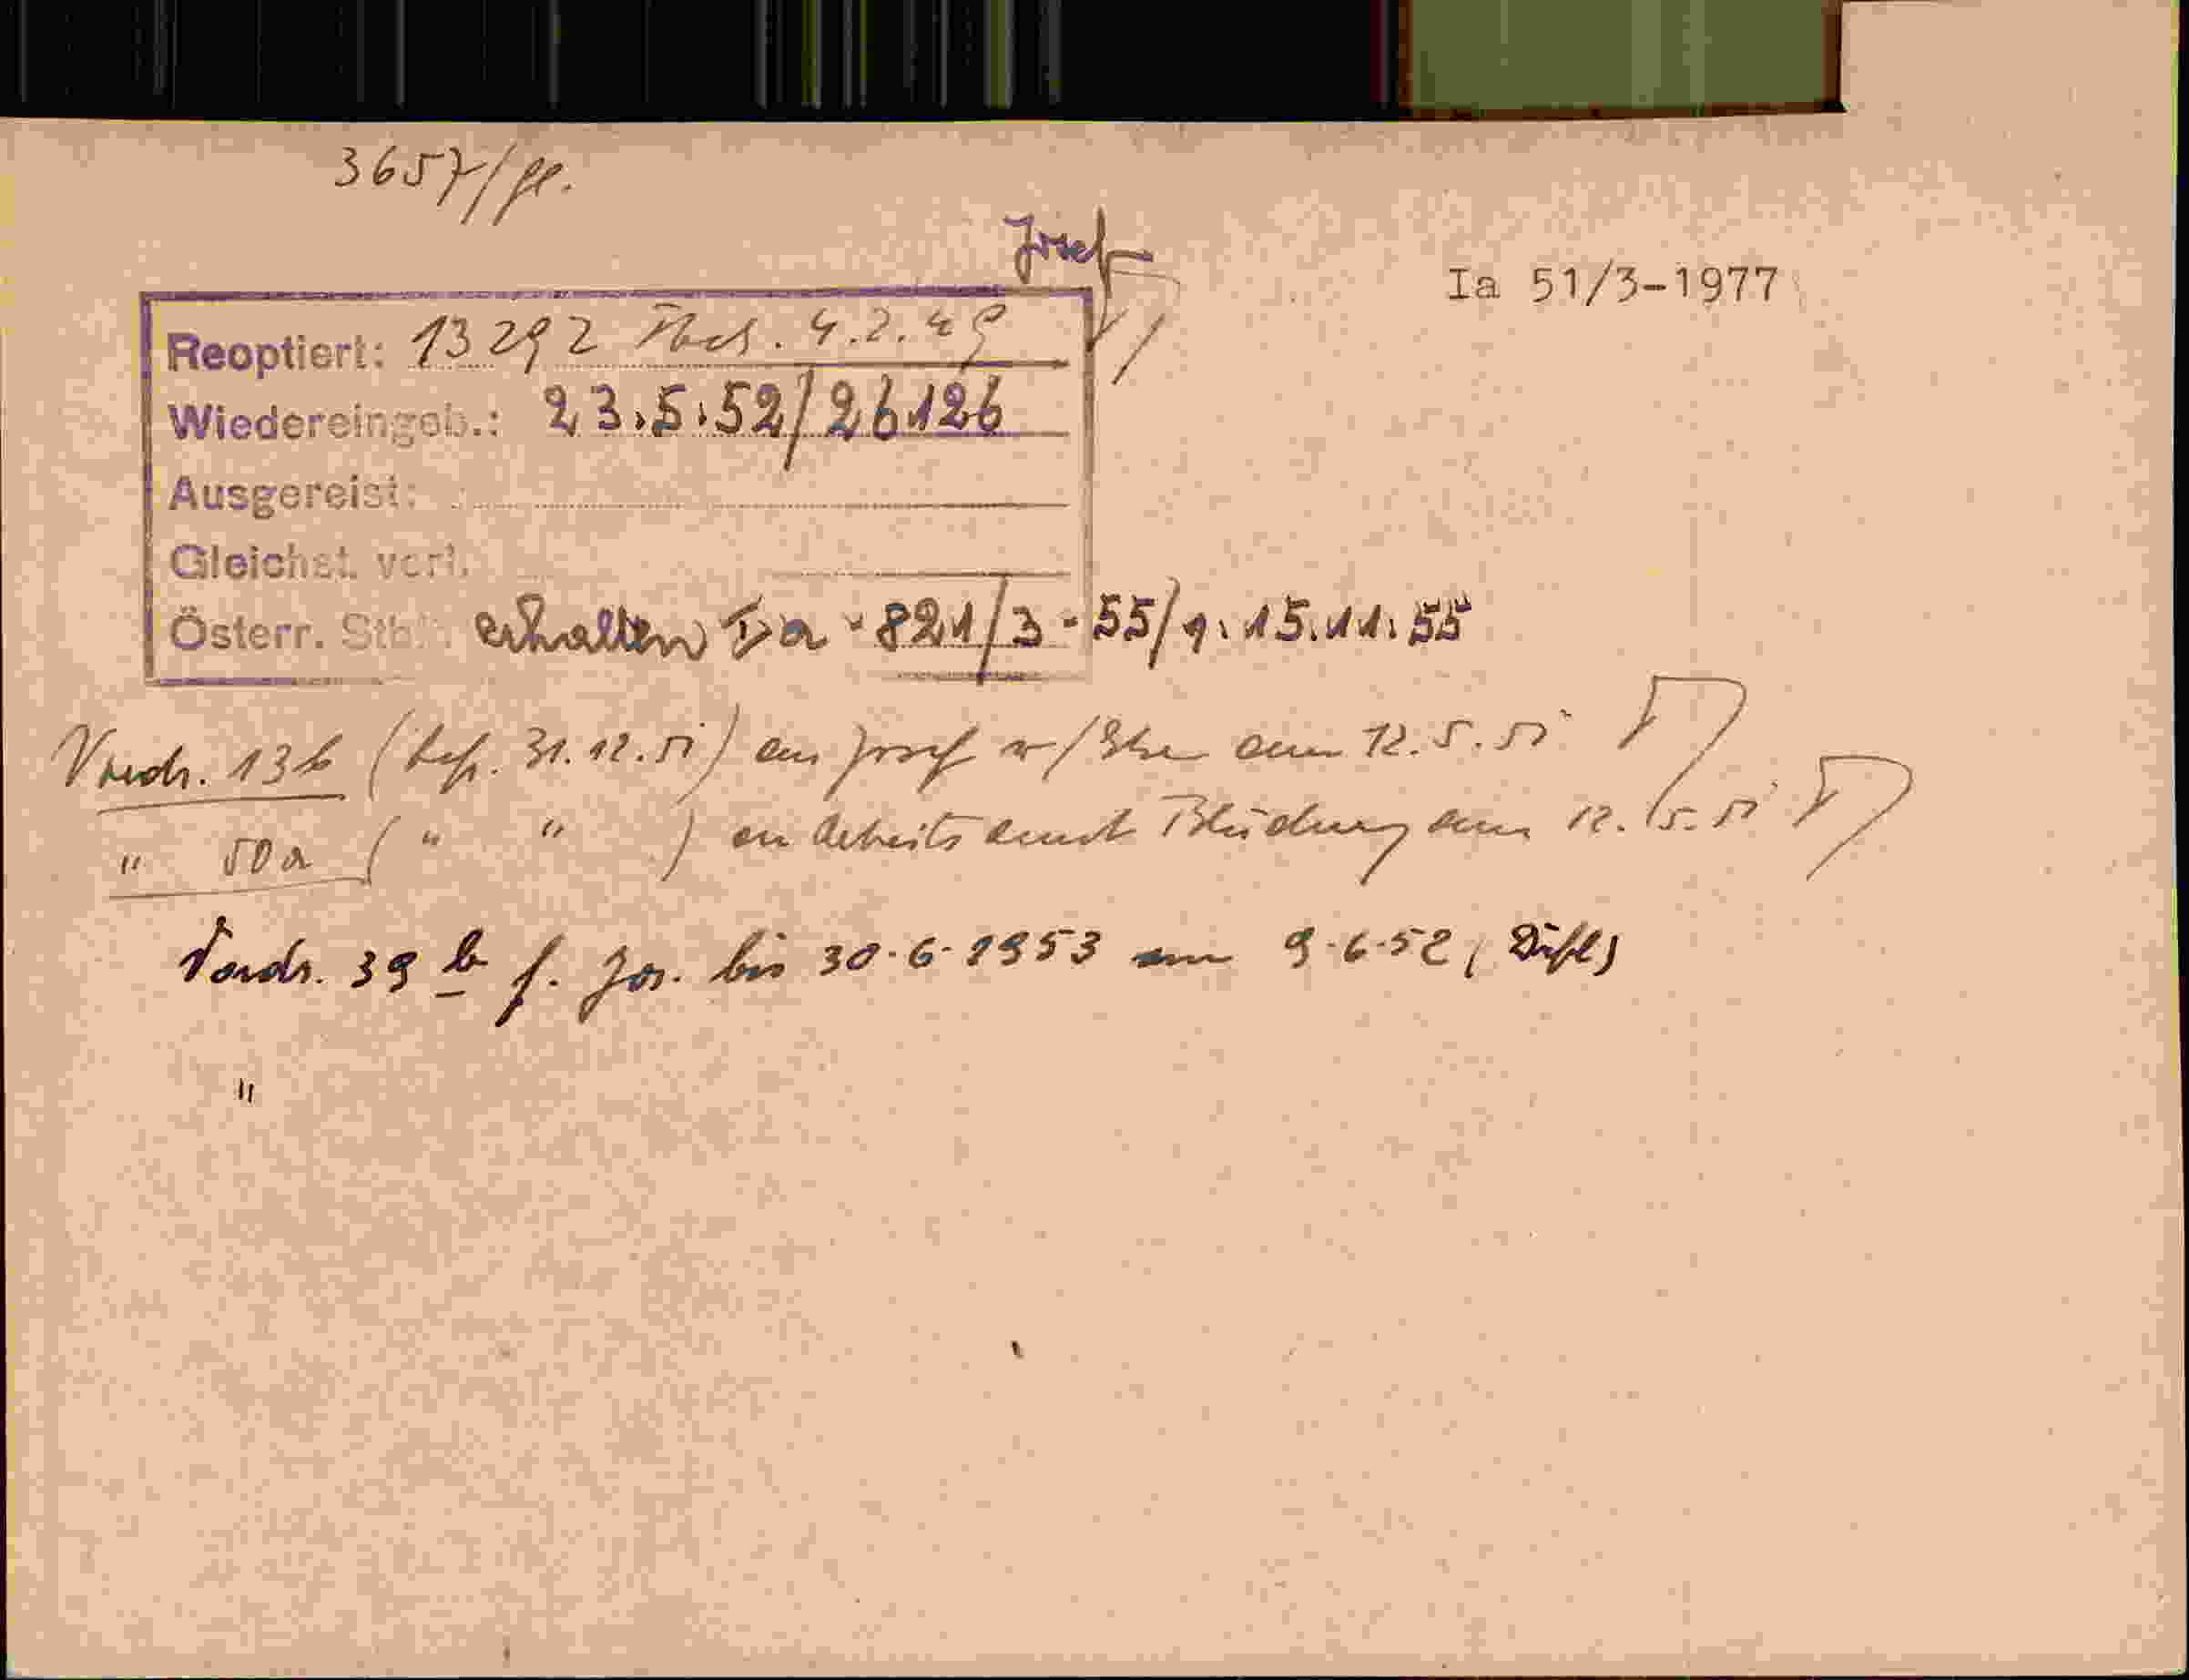 3657/
Josef
Ia 51/3-1977
Reoptiert: 13292 4.2.49
Wiedereingeb.: 23.5.52/26126
Ausgereist:
Gleichst. verl.
Österr. Stb. erhalten Ia-821/3-55/9. 15.11.55
Vordr. 13b (bef. 31.12.51) an Josef am 12.5.51
" 50a ( " " ) an Arbeitsamt Bludenz am 12.5.51
Vordr. 39 b f. Jos. bis 30.6.1953 am 9.6.52
"